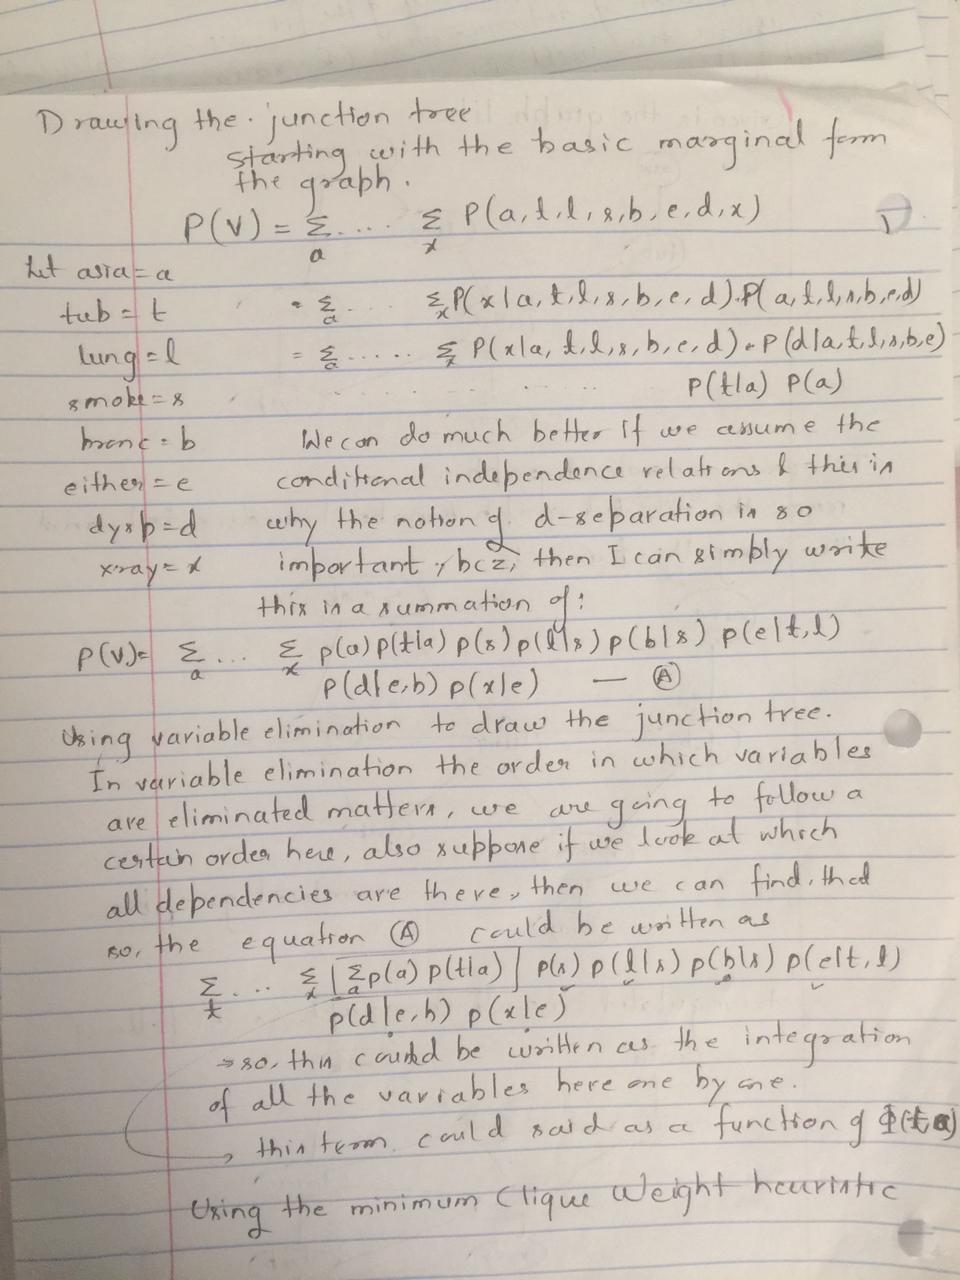 Drawing the junction tree
starting with the basic marginal form
the graph.
P(V) = Σ .... Σ P(a,t,l,s,b,e,d,x) 1
a x
Let asia = a
tub = t = Σ ... Σ P(x|a,t,l,s,b,e,d).P(a,t,l,s,b,e,d)
a x
lung = l = Σ ..... Σ P(x|a,t,l,s,b,e,d).P(d|a,t,l,s,b,e)
a x
smoke = s . . . . . . P(t|a) P(a)
bronc = b We can do much better if we assume the
either = e conditional independence relations & this is
dysp = d why the notion of d-separation is so
xray = x important, bcz, then I can simply write
this in a summation of:
P(V)= Σ ... Σ p(a) p(t|a) p(s) p(l|s) p(b|s) p(e|t,l)
a x
p(d|e,b) p(x|e) — Ⓐ
Using variable elimination to draw the junction tree.
In variable elimination the order in which variables
are eliminated matters, we are going to follow a
certain order here, also suppose if we look at which
all dependencies are there, then we can find, that
so, the equation Ⓐ could be written as
Σ ... Σ [Σ p(a) p(t|a)] p(s) p(l|s) p(b|s) p(e|t,l)
t x a
p(d|e,b) p(x|e)
→ so, this could be written as the integration
of all the variables here one by one.
→ this term could said as a function of Φ(t a)
Using the minimum Clique Weight heuristic